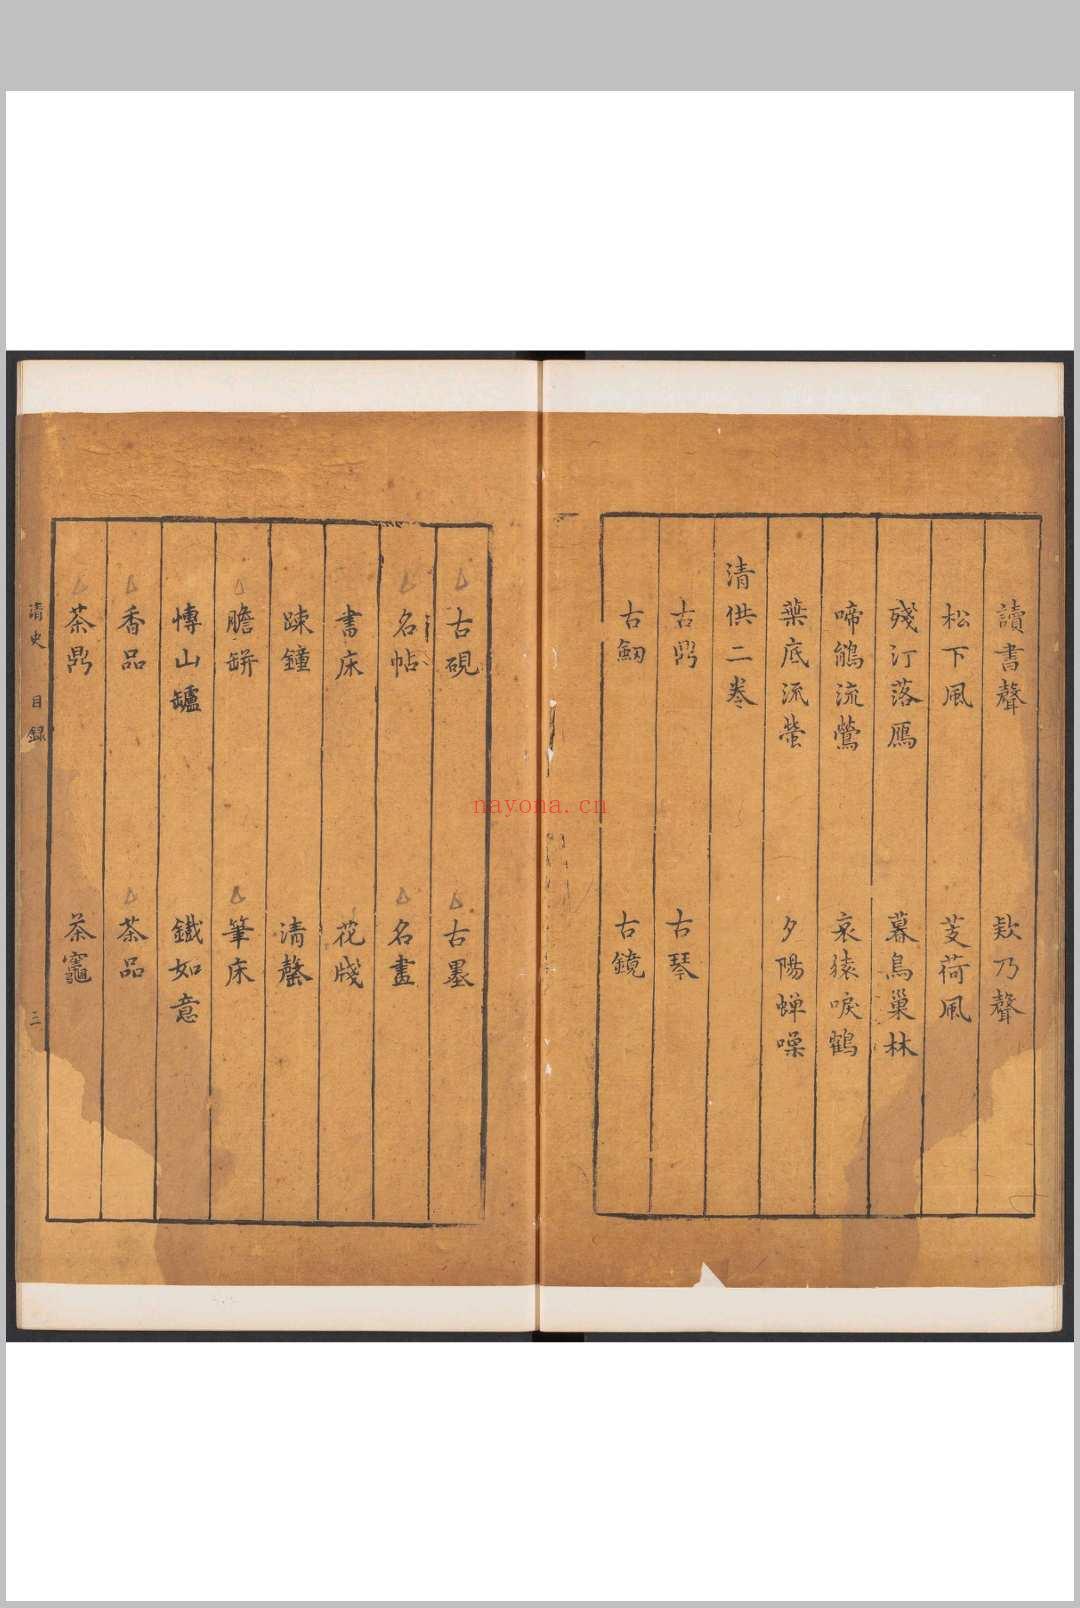 讀書聲 欵乃聲
松下風 芰荷風
殘汀落鴈 暮鳥巢林
啼鵤流鶯 哀猿唳鶴
葉底流螢 夕陽蟬噪
清供二卷
古鼎 古琴
古劒 古鏡
古硯 古墨
名帖 名畫
書床 花牋
踈鐘 清磬
膽缾 筆床
博山罏 鐵如意
香品 茶品
茶鼎 茶竈
清史 目録 三
nayona.cn